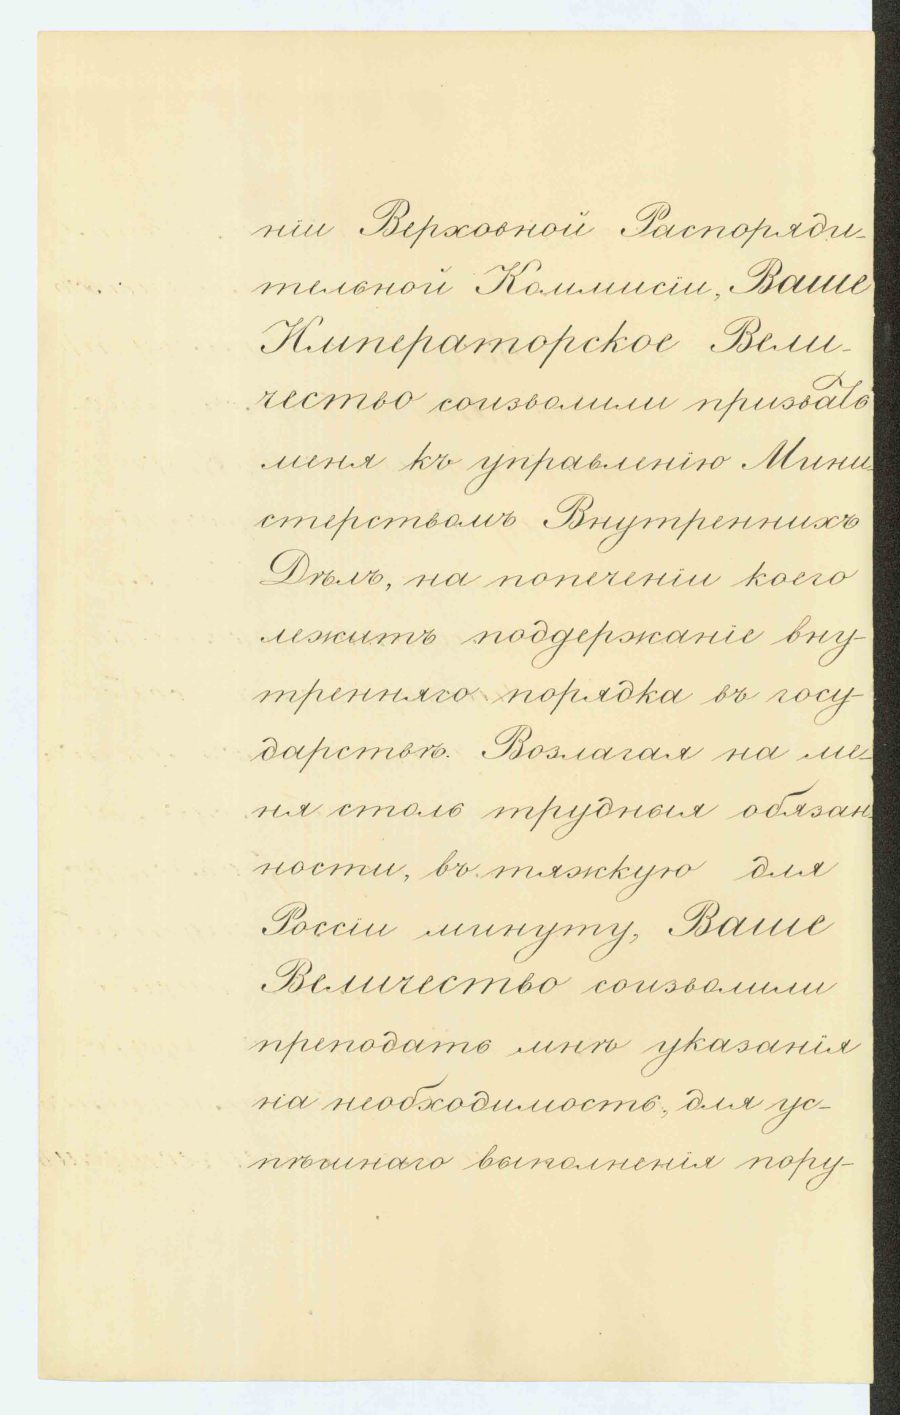 ніи Верховной Распоряди-
тельной Коммисіи, Ваше
Императорское Вели-
чество соизволили призвать
меня къ управленію Мини-
стерствомъ Внутреннихъ
Дѣлъ, на попеченіи коего
лежитъ поддержаніе вну-
тренняго порядка въ госу-
дарствѣ. Возлагая на ме-
ня столь трудныя обязан-
ности, въ тяжкую для
Россіи минуту, Ваше
Величество соизволили
преподать мнѣ указанія
на необходимость, для ус-
пѣшнаго выполненія пору-